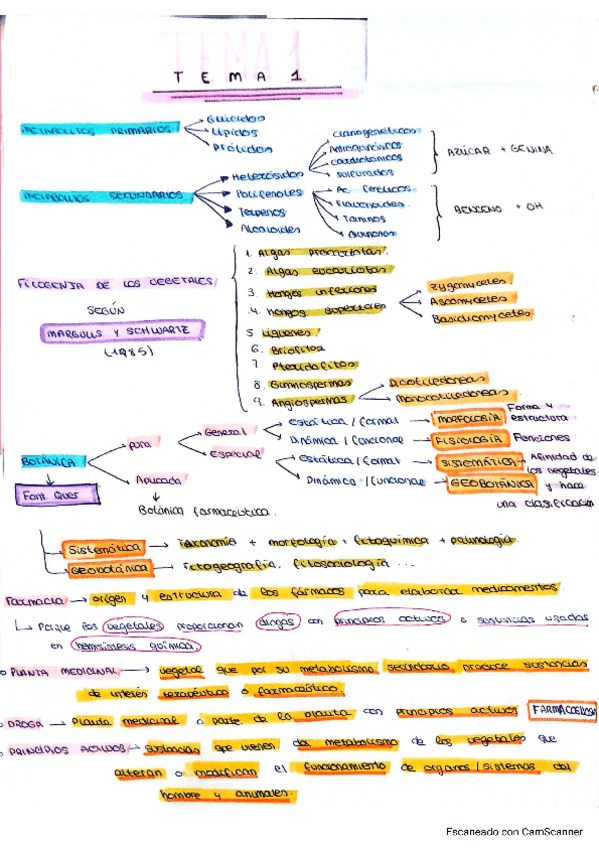 TEMA 1
TEMA 1
METABOLITOS PRIMARIOS
Glúcidos
Lípidos
Prótidos
METABOLITOS SECUNDARIOS
Heterósidos
Polifenoles
Terpenos
Alcaloides
Cianogenéticos
Antraquinónicos
Cardiotónicos
Sulfurados
AZÚCAR + GENINA
Ac. fenólicos.
Flavonoides.
Taninos
Quinonas
BENCENO + OH
FILOGENIA DE LOS VEGETALES
SEGÚN
MARGULIS Y SCHWARTZ
(1985)
1. Algas procariotas.
2. Algas eucariotas
3. Hongos inferiores
4. Hongos superiores
Zygomycetes.
Ascomycetes
Basidiomycetes
5. Líquenes.
6. Briofitos
7 Pteridofitos
8. Gimnospermas
9. Angiospermas
Dicotiledóneas
Monocotiledóneas.
BOTÁNICA
Font Quer
pura
General
Estática / formal
MORFOLOGÍA
Forma y estructura
Dinámica / funcional
FISIOLOGÍA
Funciones
Especial
Estática / formal
SISTEMÁTICA
Afinidad de los vegetales y hace una clasificación
Dinámica / funcional
GEOBOTÁNICA
Aplicada
Botánica farmacéutica.
Sistemática → Taxonomía + morfología + fitoquímica + palinología.
Geobotánica → Fitogeografía, fitosociología ...
Farmacia → origen y estructura de los fármacos para elaborar medicamentos.
Porque los vegetales proporcionan drogas con principios activos o sustancias usadas
en hemisíntesis química.
PLANTA MEDICINAL → vegetal que por su metabolismo secundario produce sustancias
de interés terapéutico o farmacéutico.
DROGA → Planta medicinal o parte de la planta con principios activos
PRINCIPIOS ACTIVOS → Sustancias que vienen del metabolismo de los vegetales que
alteran o modifican el funcionamiento de órganos / sistemas del
hombre y animales.
Escaneado con CamScanner